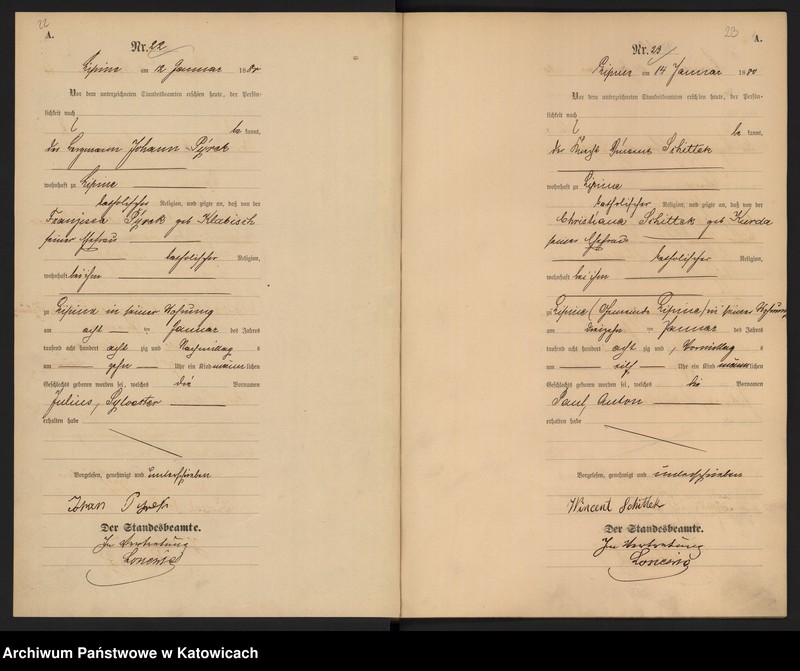 22
A.
Nr. 22
Lipine am 12 Januar 1880
Vor dem unterzeichneten Standesbeamten erschien heute, der Persön-
lichkeit nach
be kannt,
der Bergmann Johann Pyrek
wohnhaft zu Lipine
katholischer Religion, und zeigte an, daß von der
Franziska Pyrek geb Klabisch
seiner Ehefrau
katholischer Religion,
wohnhaft bei ihm
zu Lipine in seiner Wohnung
am acht ten Januar des Jahres
tausend acht hundert acht zig und Nachmittag s
um zehn Uhr ein Kind männlichen
Geschlechts geboren worden sei, welches die Vornamen
Julius, Sylvester
erhalten habe
Vorgelesen, genehmigt und unterschrieben
Johan Pyrek
Der Standesbeamte.
In Vertretung
23
A.
Nr. 23
Lipine am 14 Januar 1880
Vor dem unterzeichneten Standesbeamten erschien heute, der Persön-
lichkeit nach
be kannt,
der Knecht Schittek
wohnhaft zu Lipine
katholischer Religion, und zeigte an, daß von der
Christiana Schittek geb Kurda
seiner Ehefrau
katholischer Religion,
wohnhaft bei ihm
zu Lipine (Gemeinde Lipine) in seiner Wohnung
am dreizehn ten Januar des Jahres
tausend acht hundert acht zig und , Vormittag s
um elf Uhr ein Kind männlichen
Geschlechts geboren worden sei, welches die Vornamen
Paul, Anton
erhalten habe
Vorgelesen, genehmigt und unterschrieben
Wincent Schittek
Der Standesbeamte.
In Vertretung
Archiwum Państwowe w Katowicach